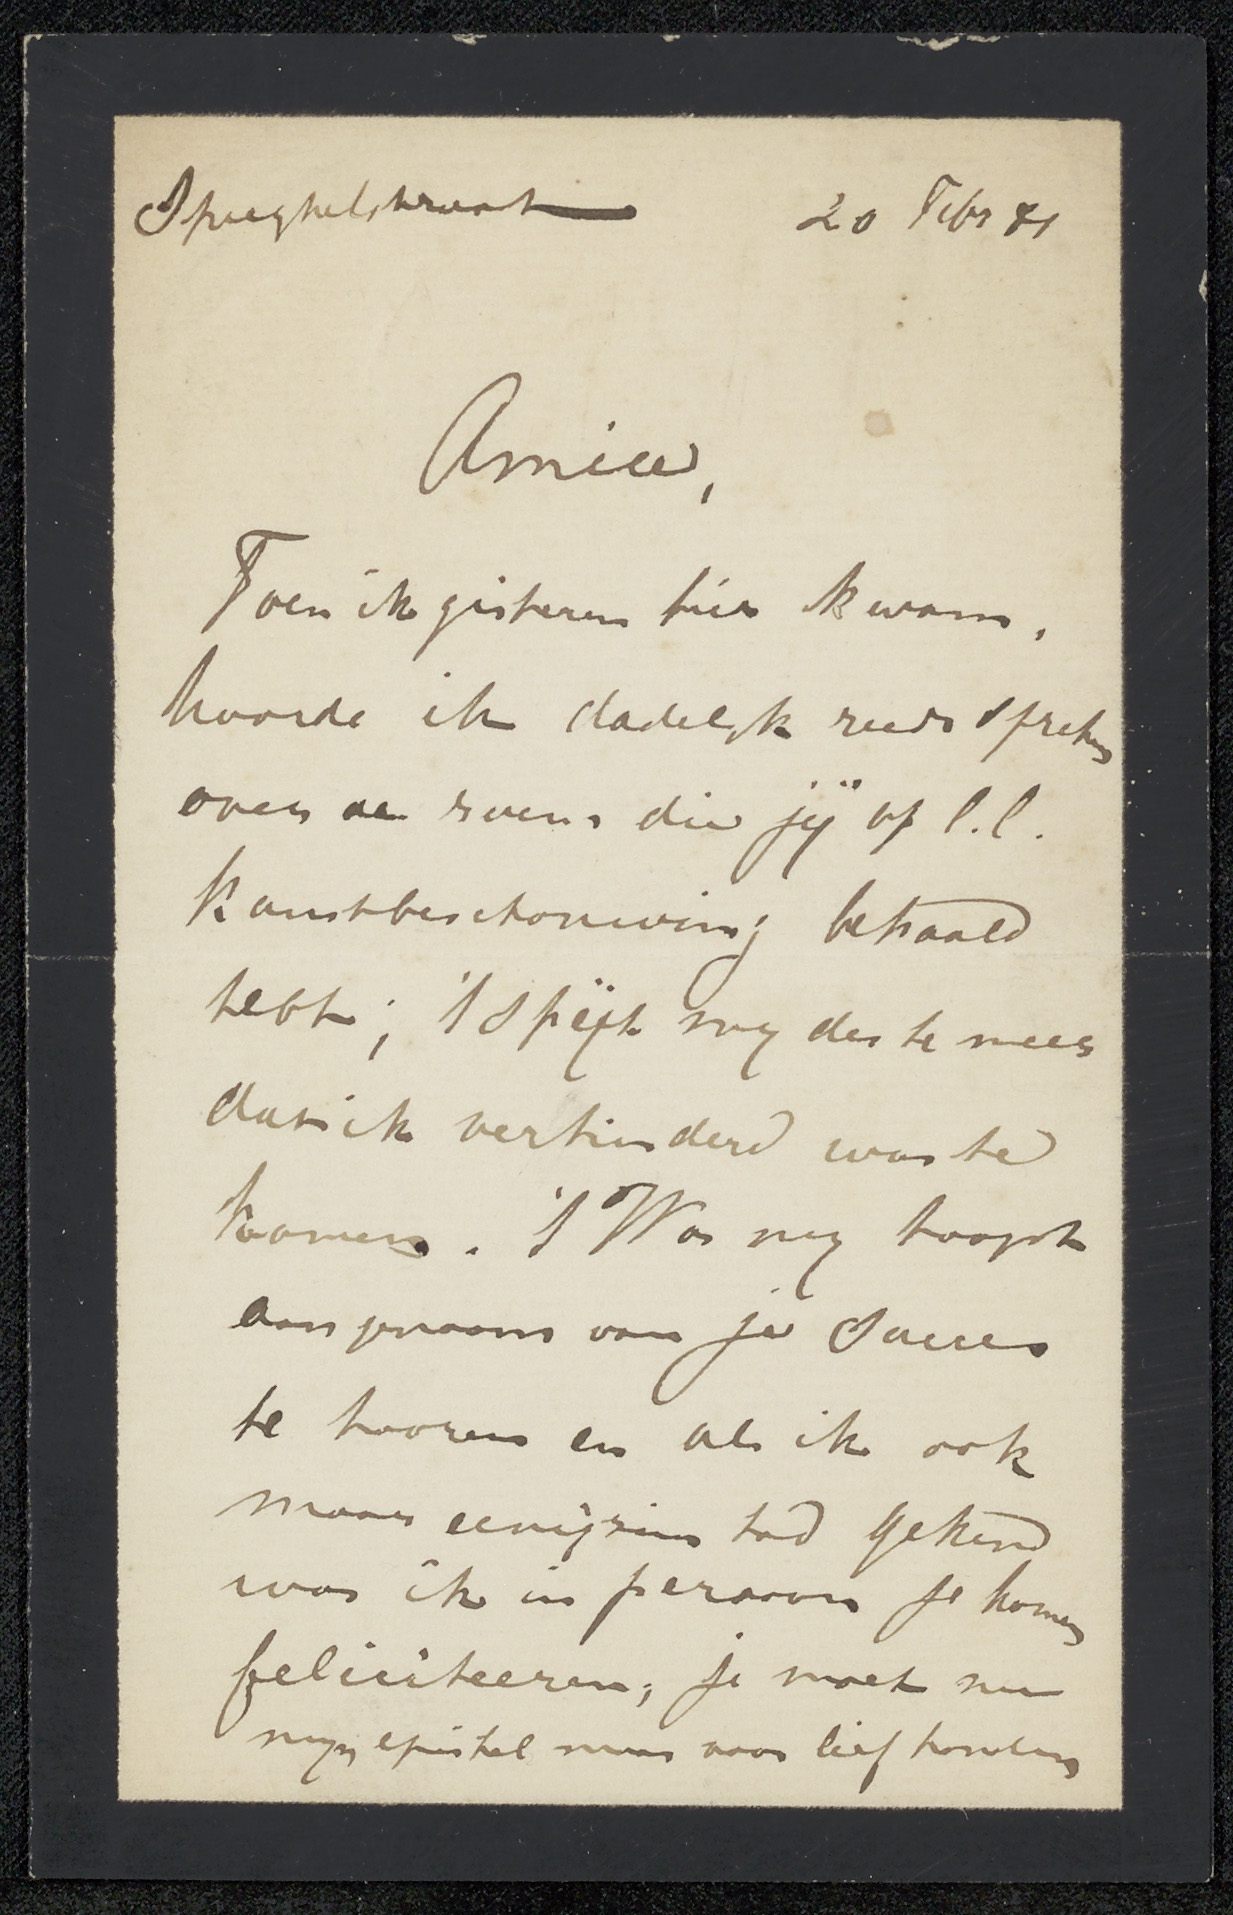 Spieghelstraat 20 Febr 81
Amice,
Toen ik gisteren hier kwam,
hoorde ik dadelijk reeds spreken
over de roem die jij op l.l.
Kunstbeschouwing behaald
hebt; 't Spijt my des te meer
dat ik verhinderd was te
komen. 't Was my hoogst
aangenaam van je Succes
te hooren en als ik ook
maar eenigzins had gekend
was ik in persoon je komen
feliciteeren; je moet nu
myn epistel maar voor lief houden